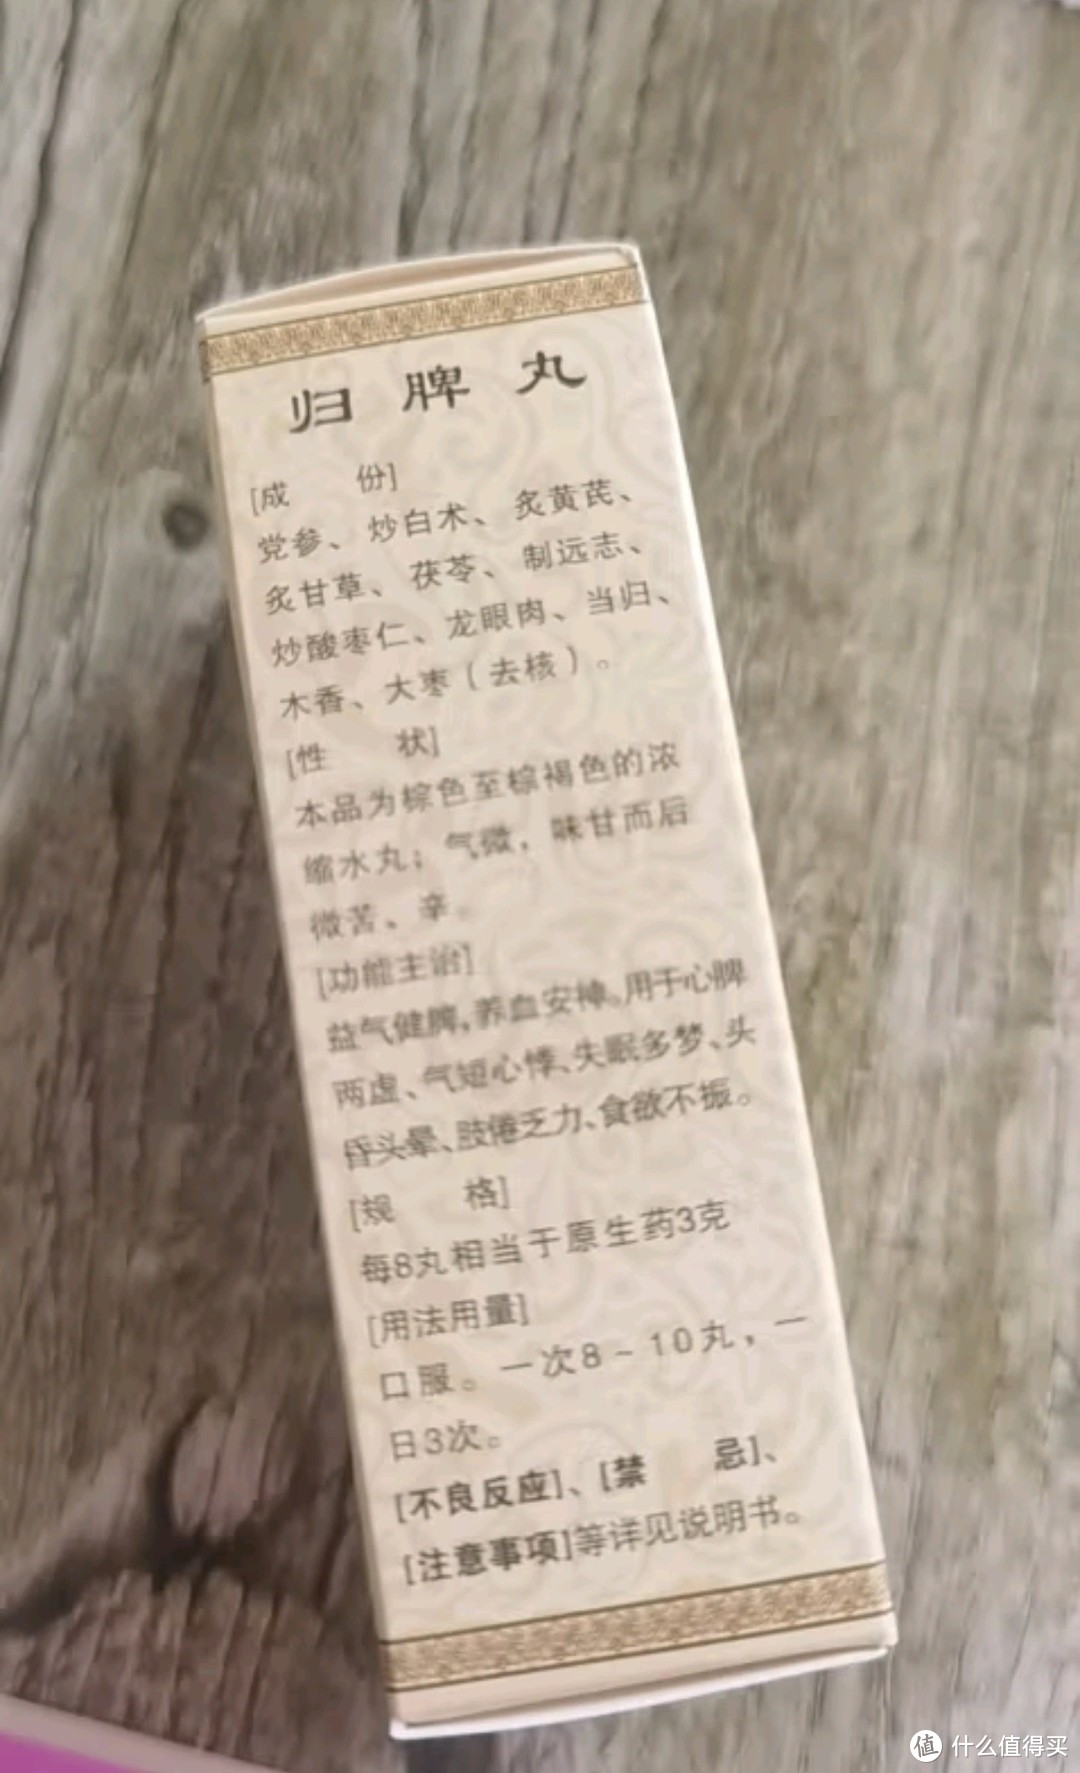 归脾丸
[成 份]
党参、炒白术、炙黄芪、
炙甘草、茯苓、制远志、
炒酸枣仁、龙眼肉、当归、
木香、大枣(去核)。
[性 状]
本品为棕色至棕褐色的浓
缩水丸;气微,味甘而后
微苦、辛。
[功能主治]
益气健脾,养血安神。用于心脾
两虚、气短心悸、失眠多梦、头
昏头晕、肢倦乏力、食欲不振。
[规 格]
每8丸相当于原生药3克
[用法用量]
口服。一次8~10丸,一
日3次。
[不良反应]、[禁 忌]、
[注意事项]等详见说明书。
值 什么值得买